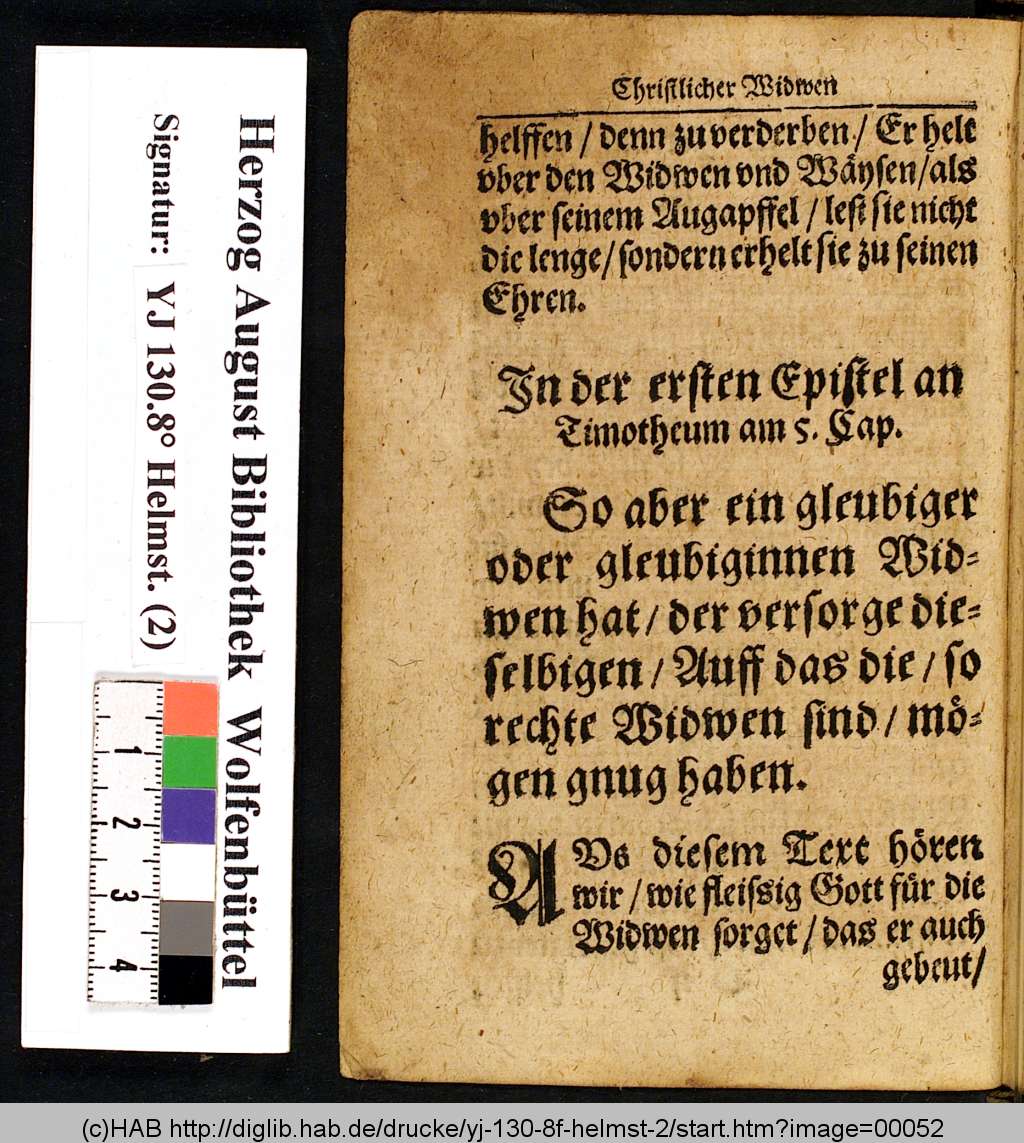 Herzog August Bibliothek Wolfenbüttel
Signatur: YJ 130.8° Helmst. (2)
1
2
3
4
Christlicher Widwen
helffen / denn zu verderben / Er helt
vber den Widwen vnd Wäysen / als
vber seinem Augapffel / lest sie nicht
die lenge / sondern erhelt sie zu seinen
Ehren.
In der ersten Epistel an
Timotheum am 5. Cap.
So aber ein gleubiger
oder gleubiginnen Wid=
wen hat / der versorge die=
selbigen / Auff das die / so
rechte Widwen sind / mö=
gen gnug haben.
AVs diesem Text hören
wir / wie fleissig Gott für die
Widwen sorget / das er auch
gebeut /
(c)HAB http://diglib.hab.de/drucke/yj-130-8f-helmst-2/start.htm?image=00052